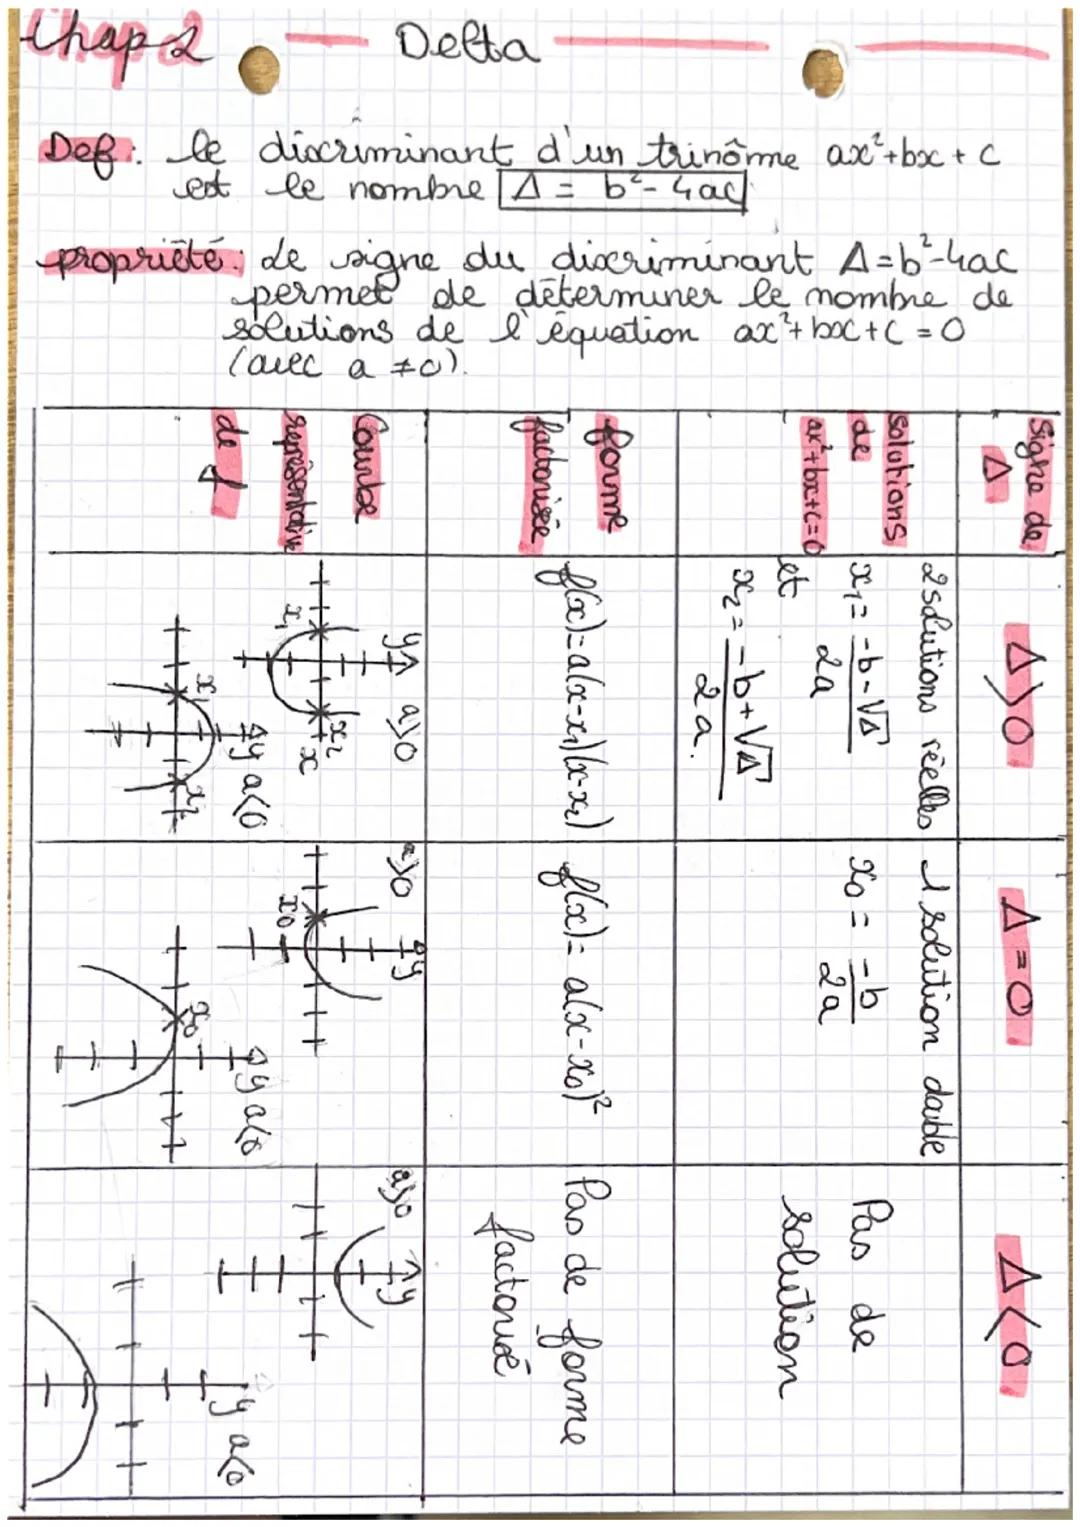 Chap 2 Delta
Def: le discriminant d'un trinôme ax²+bx+c
est le nombre Δ = b²-4ac
propriété: Le signe du discriminant Δ=b²-4ac
permet de déterminer le nombre de
solutions de l'équation ax²+bx+c=0
(avec a ≠0).
Signe de
Δ
Δ>0
Δ=0
Δ<0
solutions
de
ax²+bx+c=0
2 solutions réelles
x₁= -b-√Δ / 2a
et
x₂= -b+√Δ / 2a.
1 solution double
x₀ = -b / 2a
Pas de
solution
forme
factorisée
f(x)=a(x-x₁)(x-x₂)
f(x)= a(x-x₀)²
Pas de forme
factorisé
Courbe
représentative
de f
y a>0
x₁ x₂ x
y a<0
x₁ x₂
a>0 y
x₀
y a<0
x₀
a>0 y
y a<0